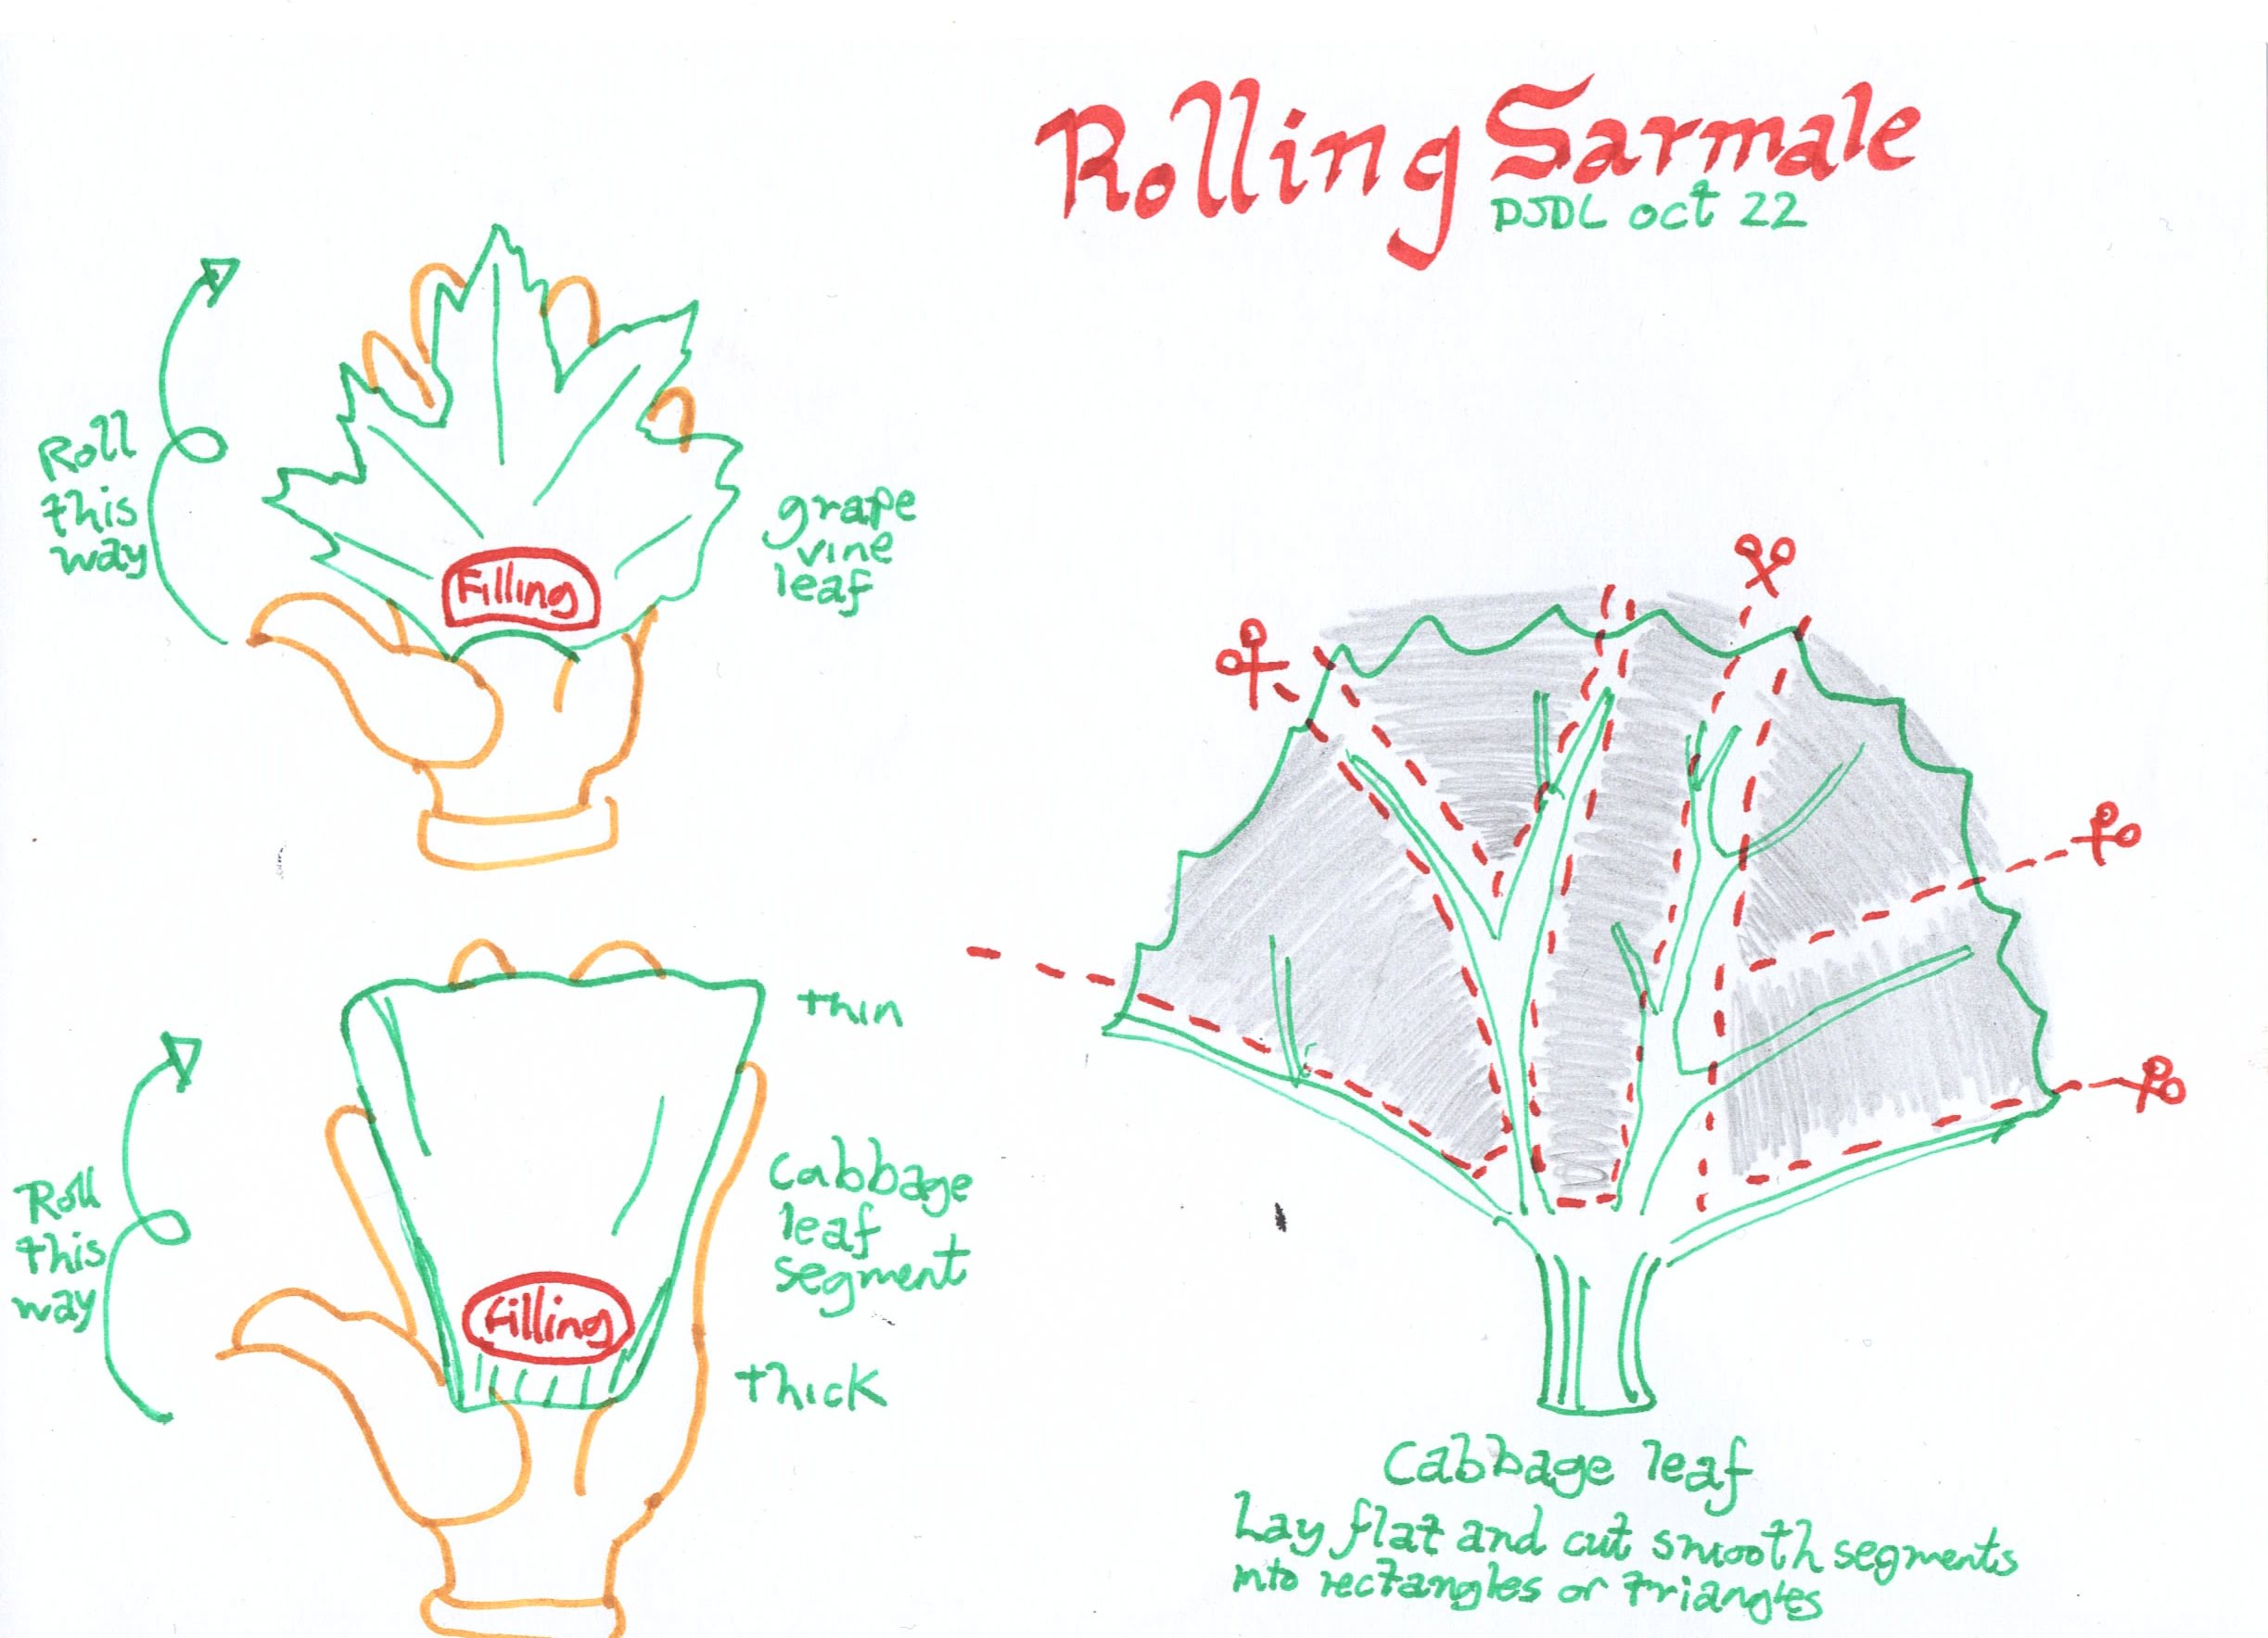 Rolling Sarmale
DJDL oct 22
Roll
this
way
Filling
grape
vine
leaf
thin
Roll
this
way
Cabbage
leaf
segment
Filling
thick
Cabbage leaf
Lay flat and cut smooth segments
into rectangles or triangles